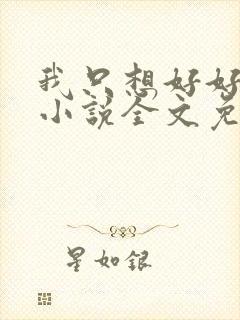 我只想好好
小说全文免
星如银